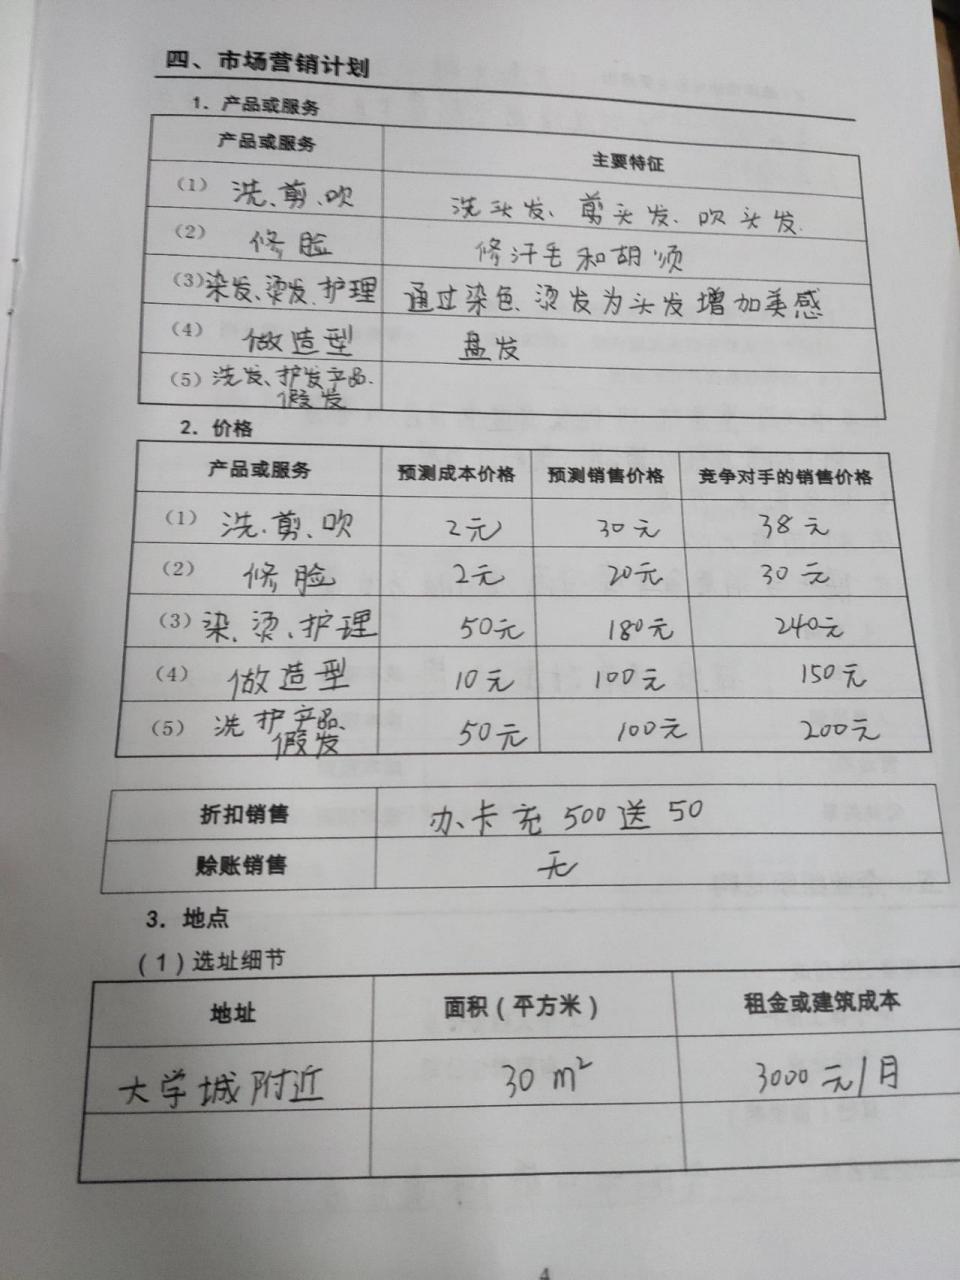 四、市场营销计划
1. 产品或服务
产品或服务 主要特征
（1） 洗、剪、吹 洗头发、剪头发、吹头发.
（2） 修脸 修汗毛和胡须
（3）染发、烫发、护理 通过染色、烫发为头发增加美感
（4） 做造型 盘发
（5）洗发、护发产品.
假发
2. 价格
产品或服务 预测成本价格 预测销售价格 竞争对手的销售价格
（1） 洗、剪、吹 2元 30元 38元
（2） 修脸 2元 20元 30元
（3）染、烫、护理 50元 180元 240元
（4） 做造型 10元 100元 150元
（5） 洗护产品、 50元 100元 200元
假发
折扣销售 办卡充500送50
赊账销售 无
3. 地点
（1）选址细节
地址 面积（平方米） 租金或建筑成本
大学城附近 30 m² 3000元/月
4